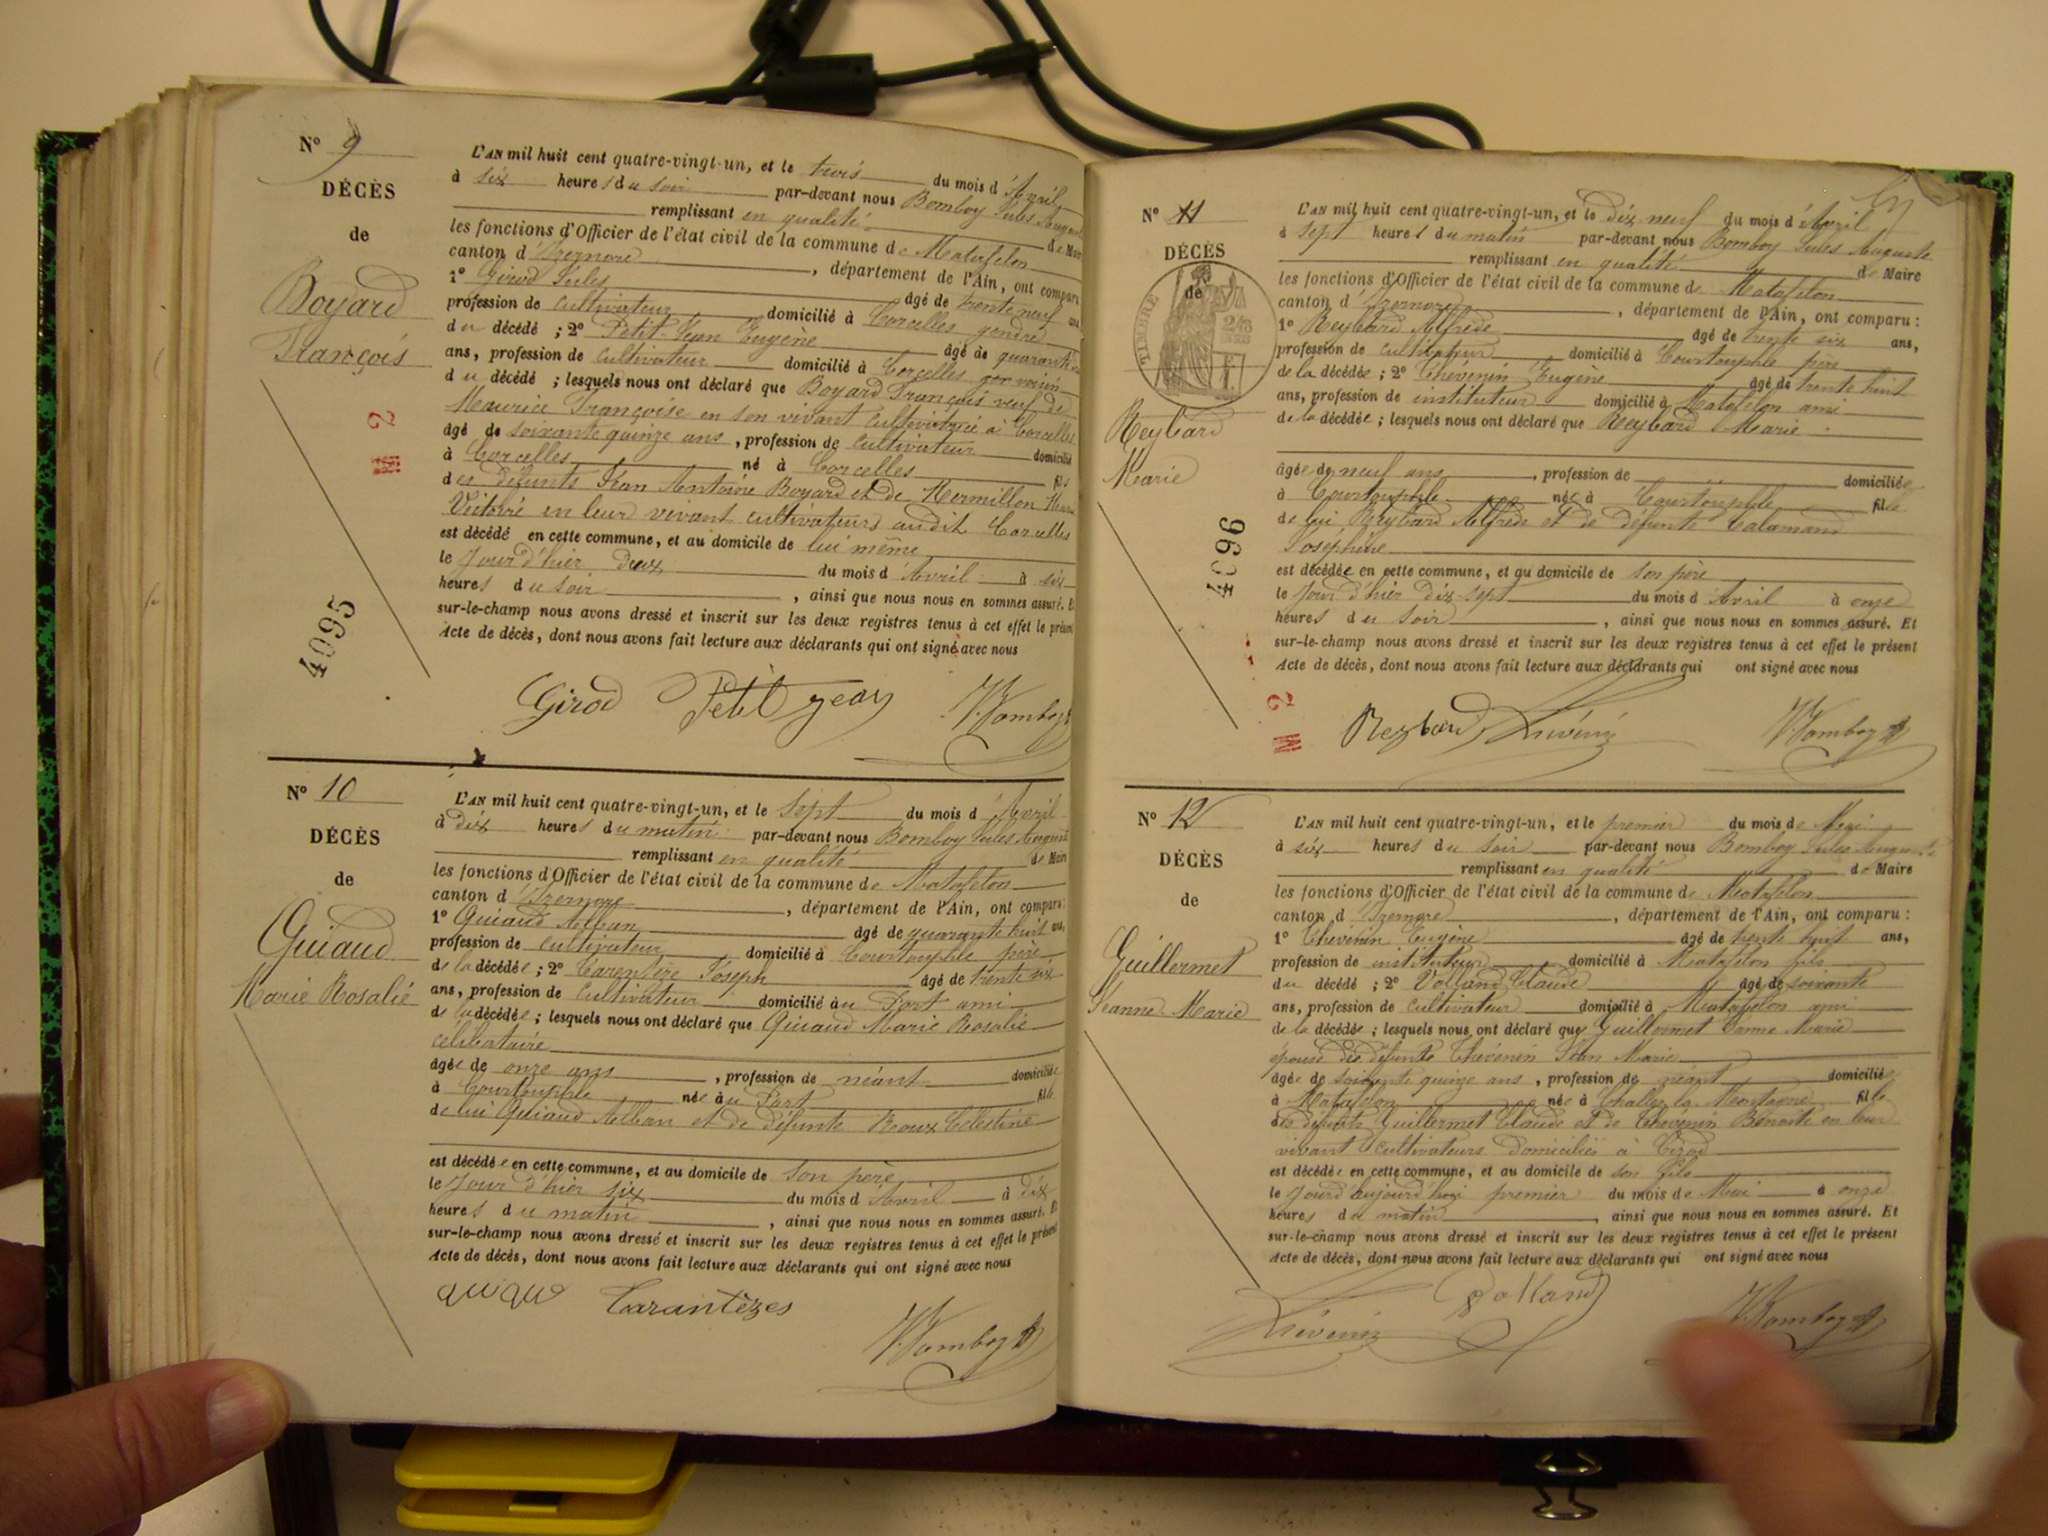 N° 9
DÉCÈS
de
Boyard
François
4095
L'AN mil huit cent quatre-vingt-un, et le trois du mois d'Avril
à six heures du soir par-devant nous Bomboy Jules August
remplissant en qualité de Maire
les fonctions d'Officier de l'état civil de la commune de Matafelon
canton d'Izernore, département de l'Ain, ont comparu
1° Girod Jules âgé de trente neuf ans
profession de cultivateur domicilié à Corcelles gendre
du décédé ; 2° Petit-Jean Eugène âgé de quarante
ans, profession de cultivateur domicilié à Corcelles voisin
du décédé ; lesquels nous ont déclaré que Boyard François veuf de
Maurice Françoise en son vivant cultivateur à Corcelles
âgé de soixante quinze ans, profession de cultivateur domicilié
à Corcelles né à Corcelles fils
des défunts Jean Antoine Boyard et de Mermillon
en leur vivant cultivateurs audit Corcelles
est décédé en cette commune, et au domicile de lui même
le Jour d'hier deux du mois d'Avril à six
heures du soir, ainsi que nous nous en sommes assuré. Et
sur-le-champ nous avons dressé et inscrit sur les deux registres tenus à cet effet le présent
Acte de décès, dont nous avons fait lecture aux déclarants qui ont signé avec nous
Girod Petit jean J. Bomboy
N° 10
DÉCÈS
de
Guiaud
Marie Rosalie
L'AN mil huit cent quatre-vingt-un, et le sept du mois d'Avril
à dix heures du matin par-devant nous Bomboy Jules August
remplissant en qualité de Maire
les fonctions d'Officier de l'état civil de la commune de Matafelon
canton d'Izernore, département de l'Ain, ont comparu :
1° Guiaud Alban âgé de quarante huit ans,
profession de cultivateur domicilié à Courtouphle père
de la décédée ; 2° Carentèze Joseph âgé de trente six
ans, profession de cultivateur domicilié au Port ami
de la décédée ; lesquels nous ont déclaré que Guiaud Marie Rosalie
célibataire
âgée de onze ans, profession de néant domiciliée
à Courtouphle née au Port fille
de lui Guiaud Alban et de défunte Roux Célestine
est décédée en cette commune, et au domicile de son père
le Jour d'hier six du mois d'Avril à dix
heures du matin, ainsi que nous nous en sommes assuré. Et
sur-le-champ nous avons dressé et inscrit sur les deux registres tenus à cet effet le présent
Acte de décès, dont nous avons fait lecture aux déclarants qui ont signé avec nous
Carantèzes J. Bomboy
N° 11
DÉCÈS
de
TIMBRE
Reybard
Marie
4096
2 M
L'AN mil huit cent quatre-vingt-un, et le dix neuf du mois d'Avril
à sept heures du matin par-devant nous Bomboy Jules Auguste
remplissant en qualité de Maire
les fonctions d'Officier de l'état civil de la commune de Matafelon
canton d'Izernore, département de l'Ain, ont comparu :
1° Reybard Alfrede âgé de trente six ans,
profession de cultivateur domicilié à Courtouphle père
de la décédée ; 2° Chevenin Eugène âgé de trente huit
ans, profession de instituteur domicilié à Matafelon ami
de la décédée ; lesquels nous ont déclaré que Reybard Marie
âgée de neuf ans, profession de domiciliée
à Courtouphle née à Courtouphle fille
de lui Reybard Alfrede et de défunte Calamand
Joséphine
est décédée en cette commune, et au domicile de son père
le Jour d'hier dix sept du mois d'Avril à onze
heures du soir, ainsi que nous nous en sommes assuré. Et
sur-le-champ nous avons dressé et inscrit sur les deux registres tenus à cet effet le présent
Acte de décès, dont nous avons fait lecture aux déclarants qui ont signé avec nous
Reybard J. Bomboy
N° 12
DÉCÈS
de
Guillermet
Jeanne Marie
L'AN mil huit cent quatre-vingt-un, et le premier du mois de Mai
à six heures du soir par-devant nous Bomboy Jules Auguste
remplissant en qualité de Maire
les fonctions d'Officier de l'état civil de la commune de Matafelon
canton d'Izernore, département de l'Ain, ont comparu :
1° Thévenin Eugène âgé de trente huit ans,
profession de instituteur domicilié à Matafelon fils
du décédé ; 2° Volland Claude âgé de soixante
ans, profession de cultivateur domicilié à Matafelon ami
de la décédée ; lesquels nous ont déclaré que Guillermet Jeanne Marie
épouse de défunt Thévenin Jean Marie
âgée de soixante quinze ans, profession de néant domiciliée
à Matafelon née à Challes la Montagne fille
des défunts Guillermet Claude et de Thévenin Benoite en leur
vivant cultivateurs domiciliés à
est décédée en cette commune, et au domicile de son fils
le Jourd'aujourd'hui premier du mois de Mai à onze
heures du matin, ainsi que nous nous en sommes assuré. Et
sur-le-champ nous avons dressé et inscrit sur les deux registres tenus à cet effet le présent
Acte de décès, dont nous avons fait lecture aux déclarants qui ont signé avec nous
Volland J. Bomboy